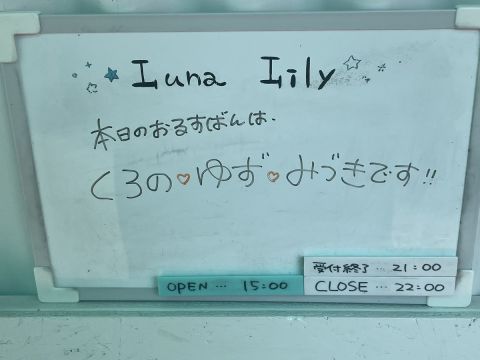 Luna Lily
本日のおるすばんは、
くろの♡ゆず♡みづきです!!
受付終了…21:00
OPEN…15:00
CLOSE…22:00